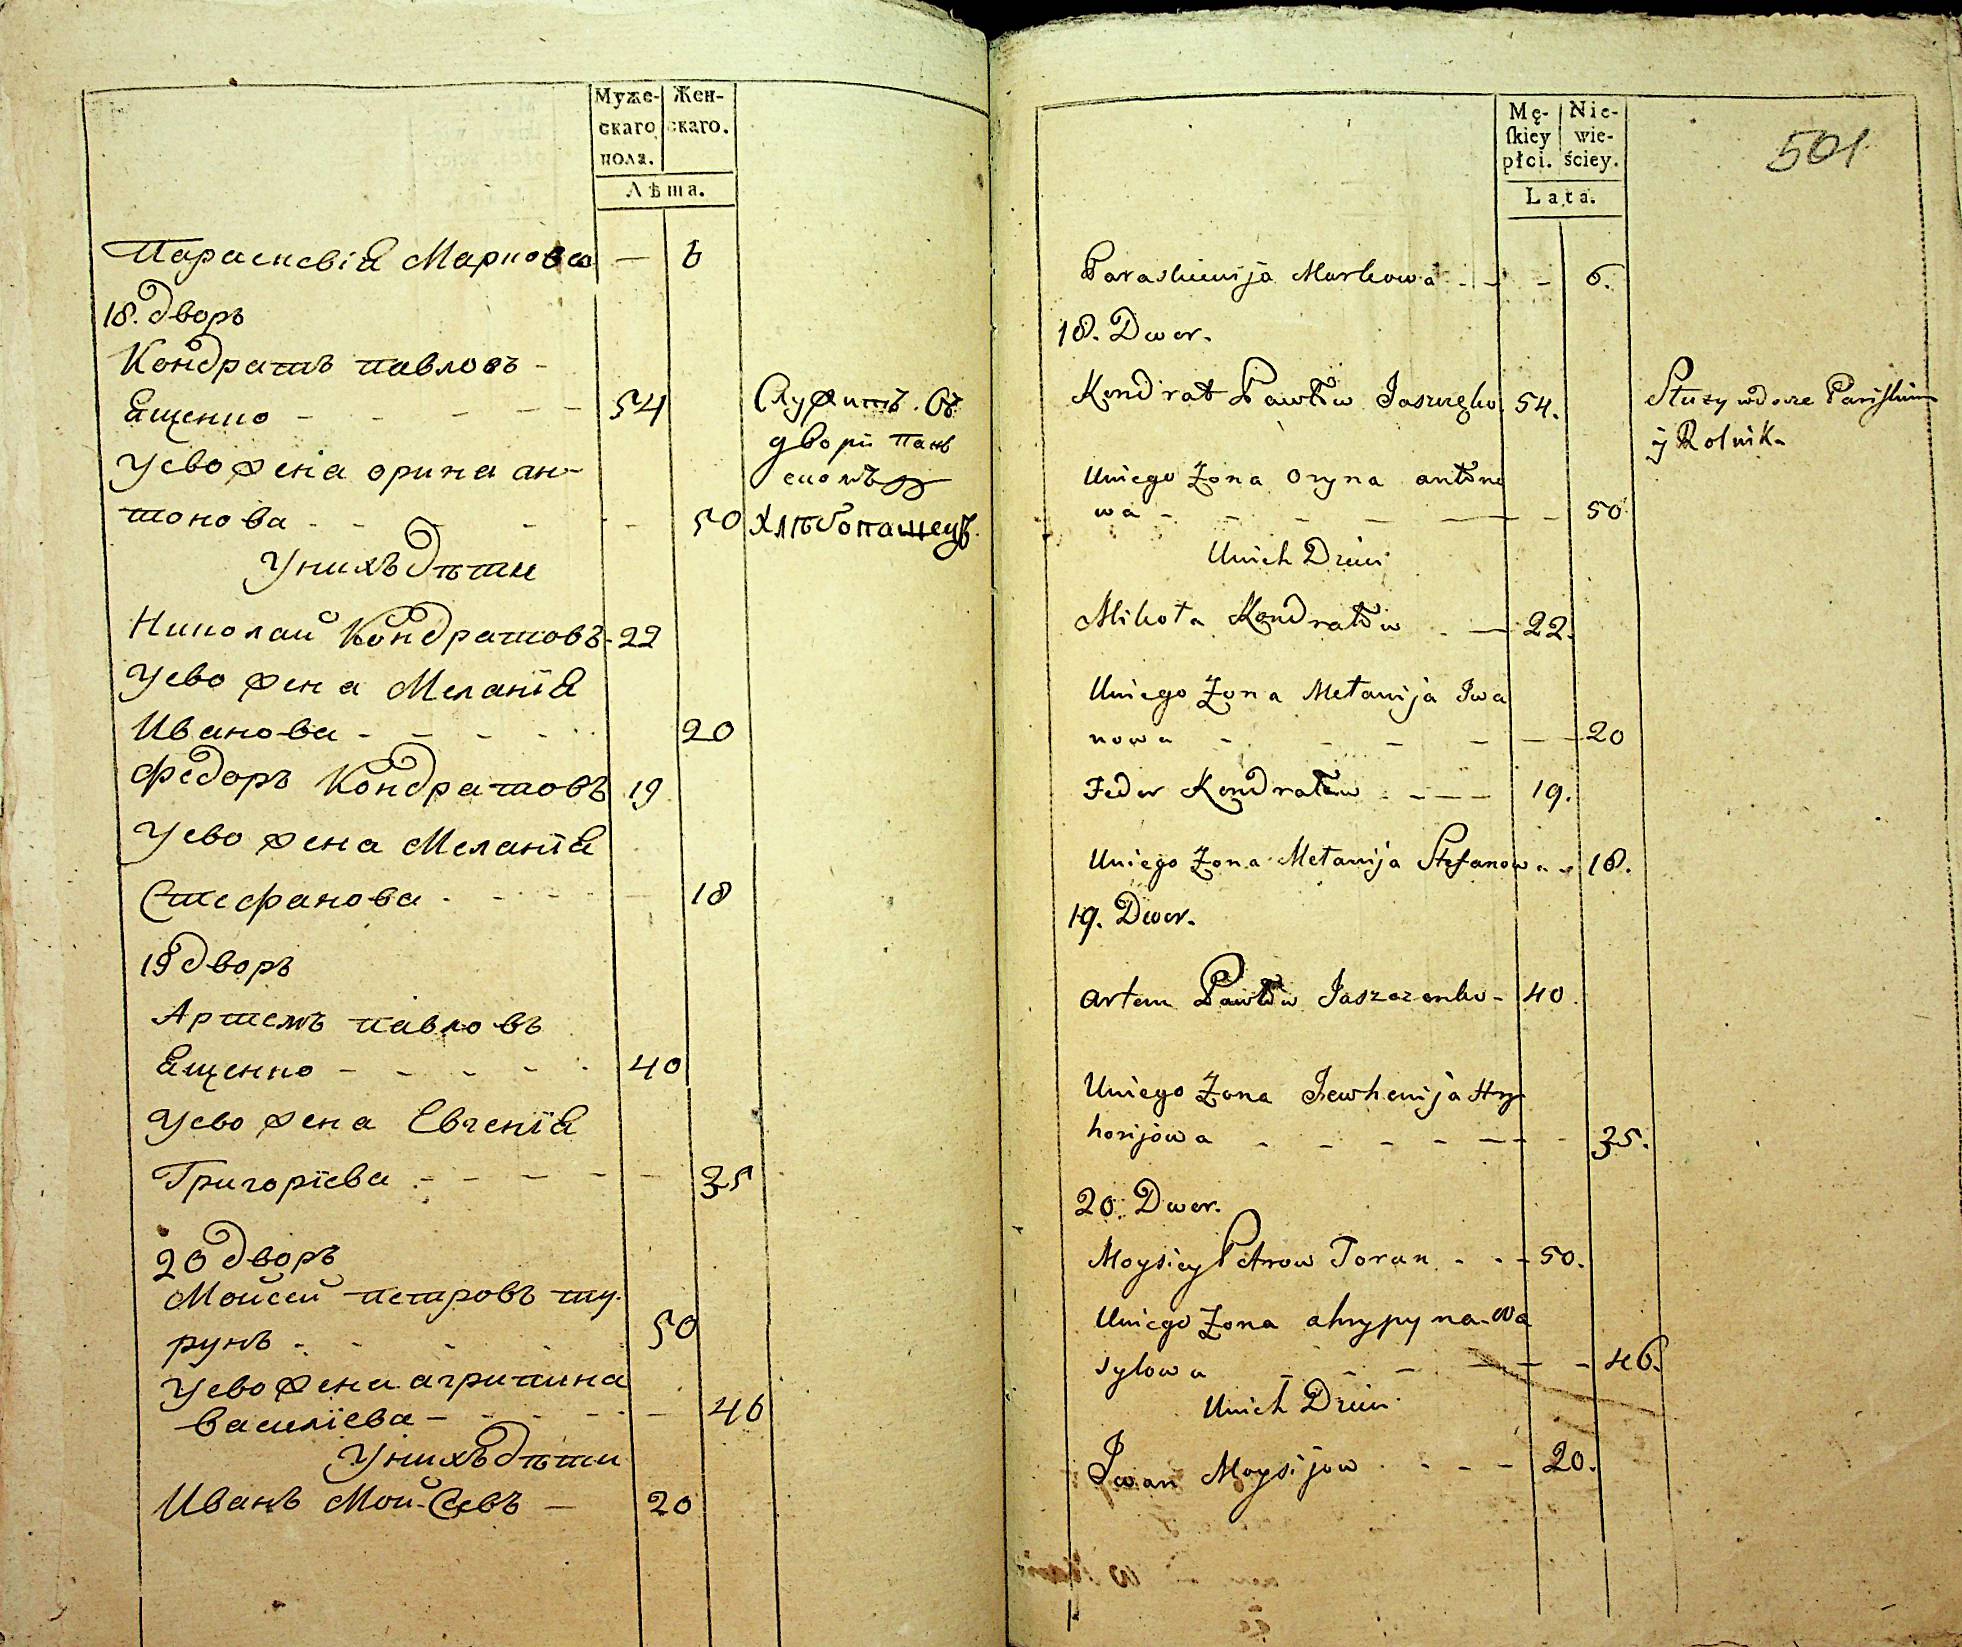 Муже- Жен-
скаго скаго.
пола.
Лѣта.
Параскевія Маркова — 6
18. дворъ
Кондратъ павловъ -
Ященко - - - - - 54 Служитъ. Въ
дворѣ пань
скомъ
Уево жена орина ан-
тонова - - - - - 50 Хлѣбопашецъ.
Унихъ дѣти
Николай Кондратовъ - 22
Уево жена Меланія
Иванова - - - - - 20
Федоръ Кондратовъ 19
Уево жена Меланія
Стефанова - - - - 18
19 дворъ
Артемъ павловъ
Ященко - - - - - 40
Уево жена Евгенія
Григоріева - - - - - 35
20 дворъ
Моисей петровъ ту-
рунъ - - - - 50
Уево жена агрипина
василіева - - - - - 46
Унихъ дѣти
Иванъ Мойсѣевъ — 20
501
Mę- Nie-
ſkiey wie-
płci. ściey.
Lata.
Paraskiewija Markowa - - - 6.
18. Dwor.
Kondrat Pawłow Jaszczęko 54. Służy wdworze Pańskim
y Rolnik.
Uniego Zona Oryna antono
wa - - - - - - 50
Unich Dzieci
Mikoła Kondratow - — 22.
Uniego Zona Mełanija Iwa
nowa - - - - — - 20
Fedor Kondratow - - — — 19.
Uniego Zona Mełanija Stefanowa - 18.
19. Dwor.
Artem Pawłow Jaszczenko - 40.
Uniego Zona Jewhenija Hry
horijowa - - - - - - - 35.
20. Dwor.
Moysiey Petrow Toran - - - 50.
Uniego Zona ahrypyna Wa
sylowa - - - - - - 46.
Unich Dzieci
Iwan Moysijow - - - - 20.